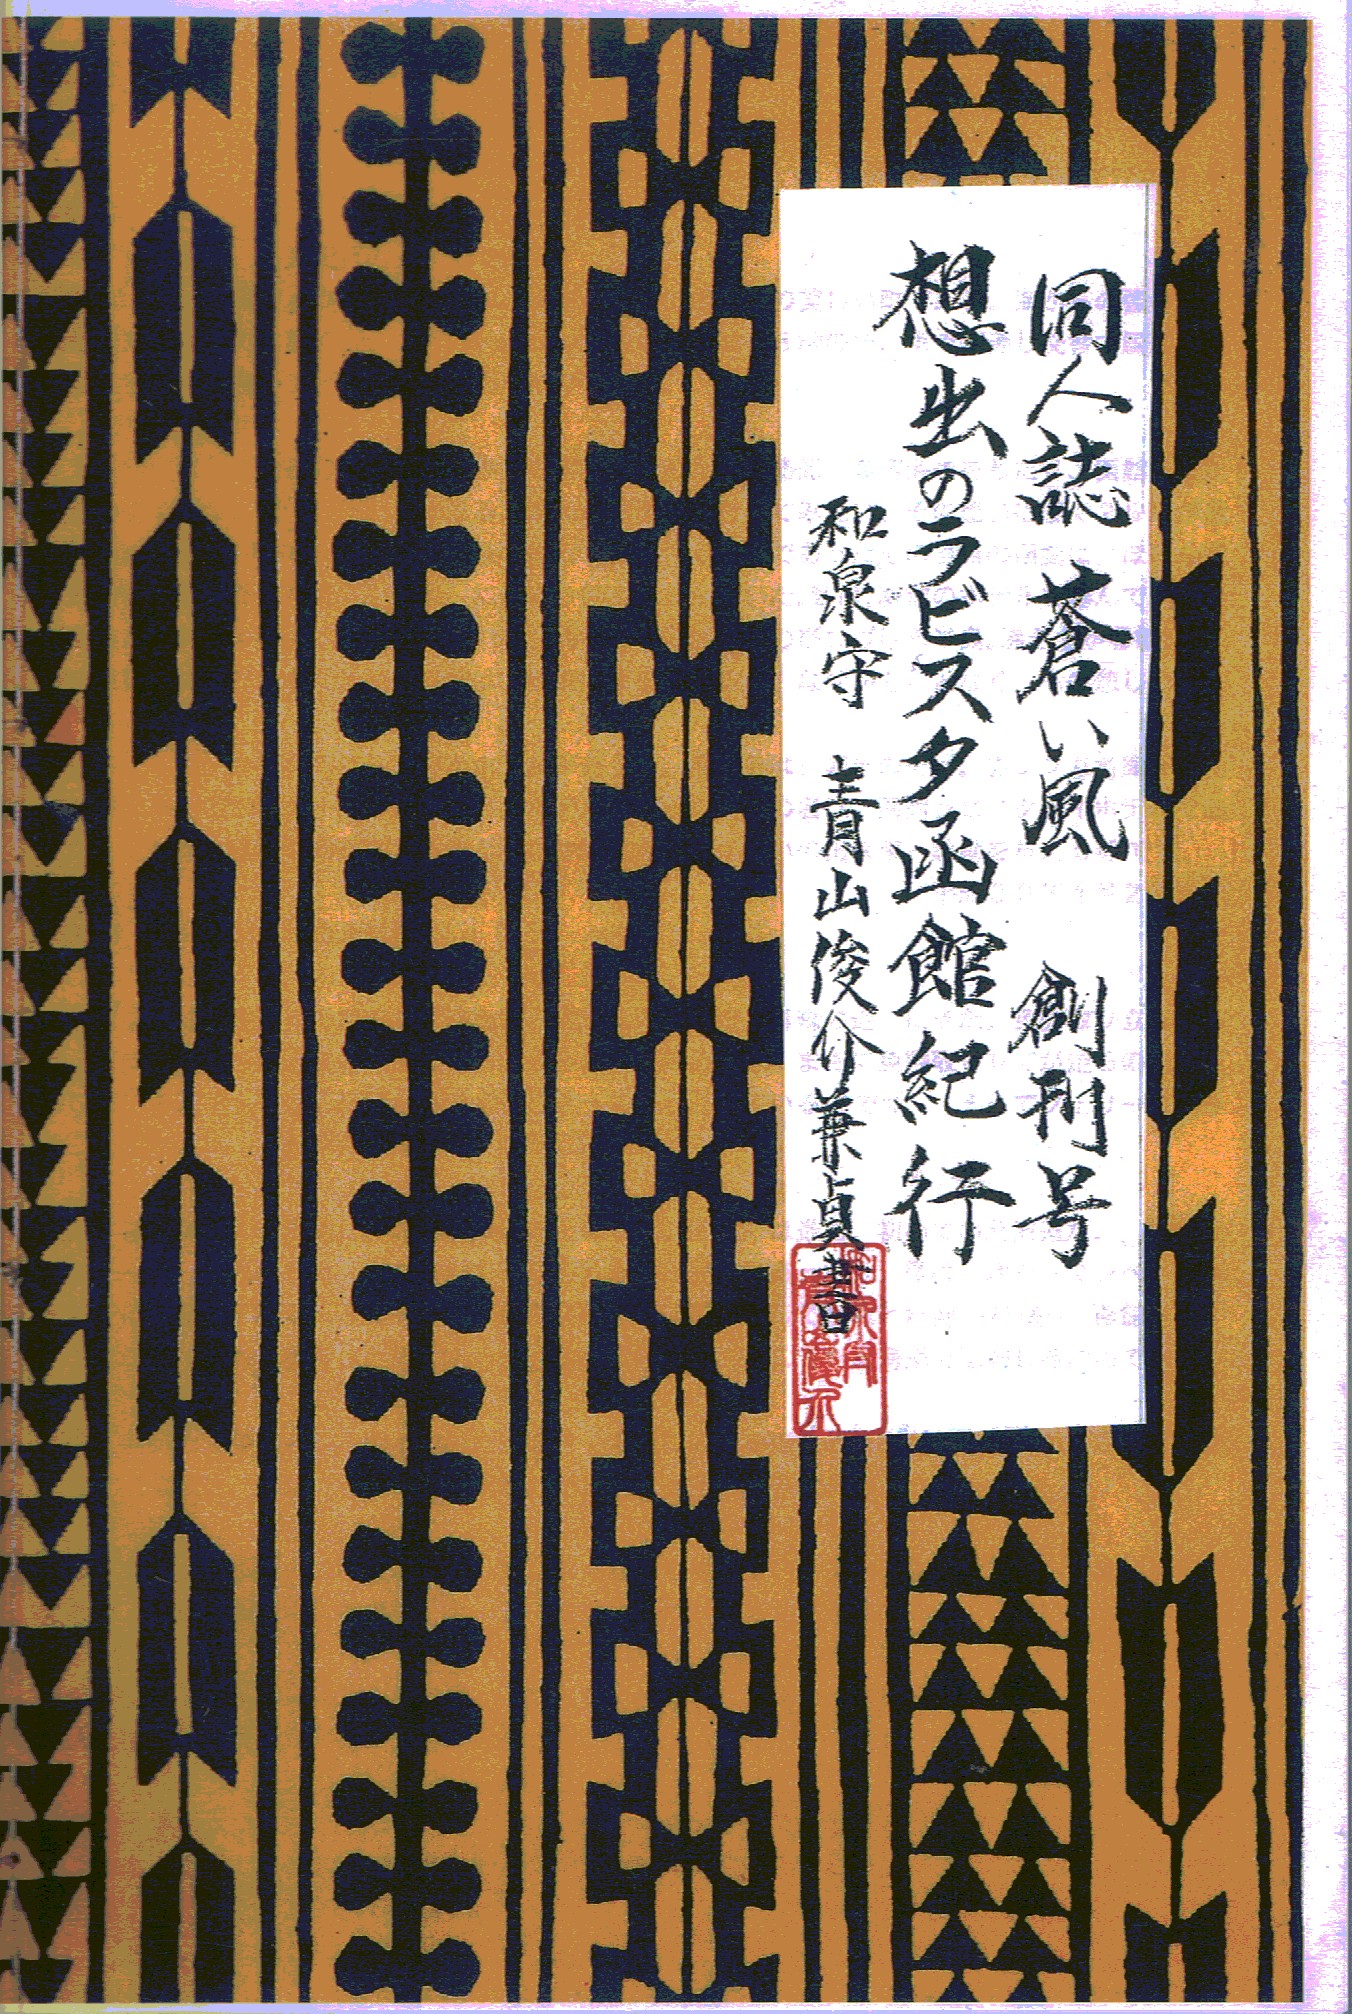 同人誌 蒼い風 創刊号
想出のラビスタ函館紀行
和泉守 青山俊介兼貞書